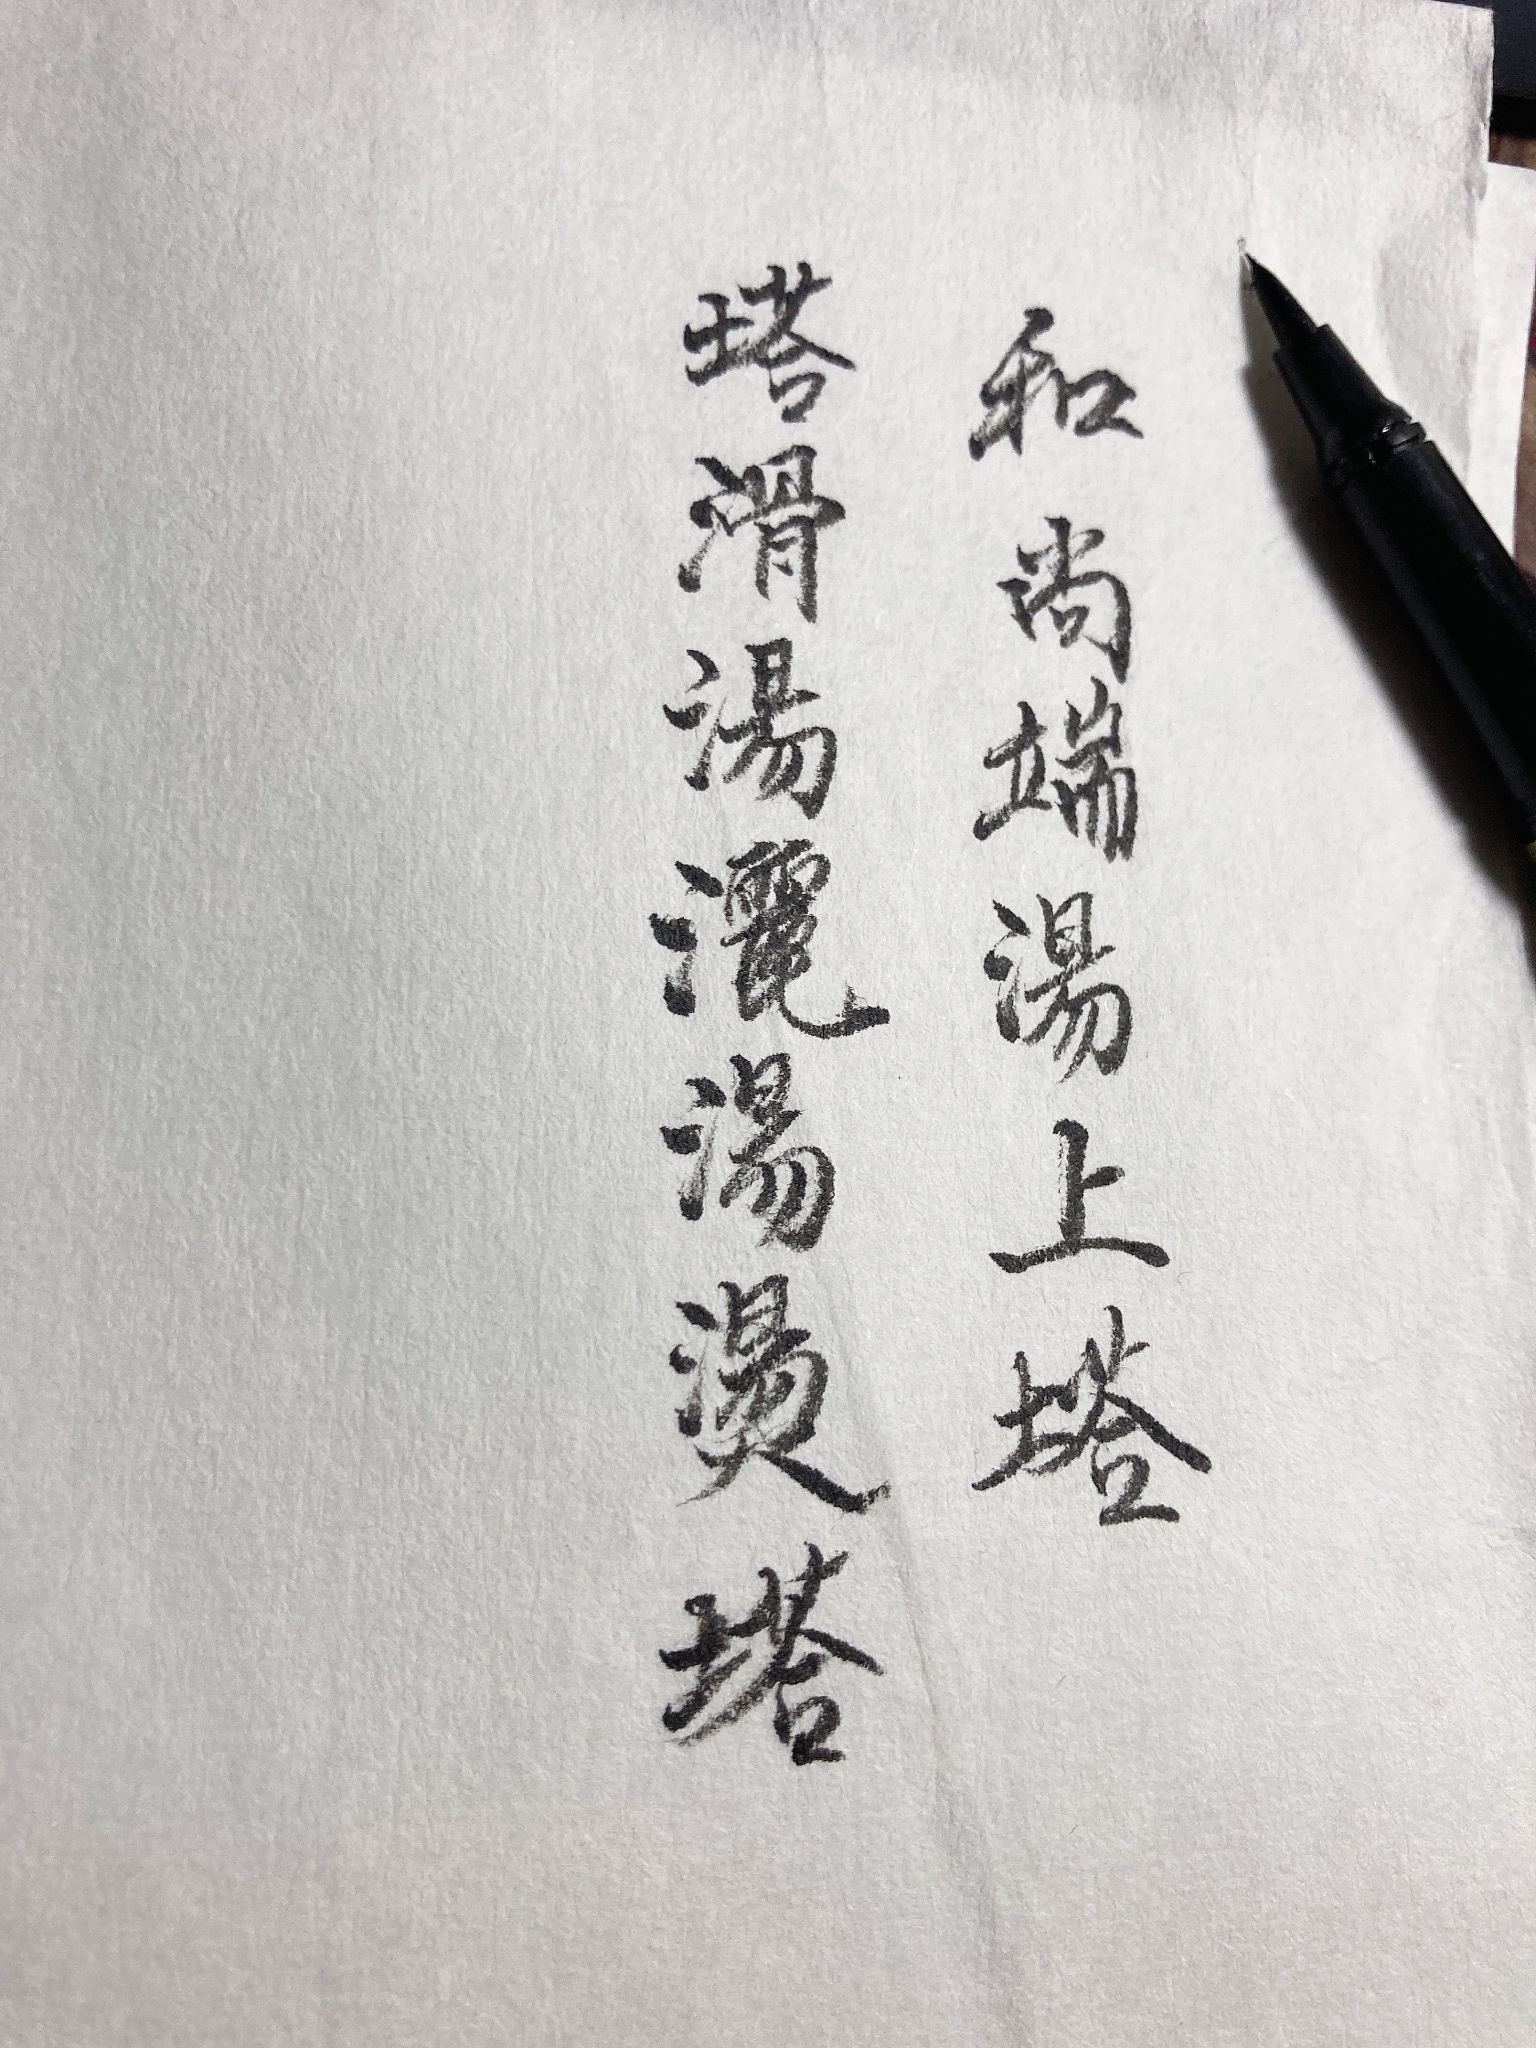 和尚端湯上塔
塔滑湯灑湯燙塔